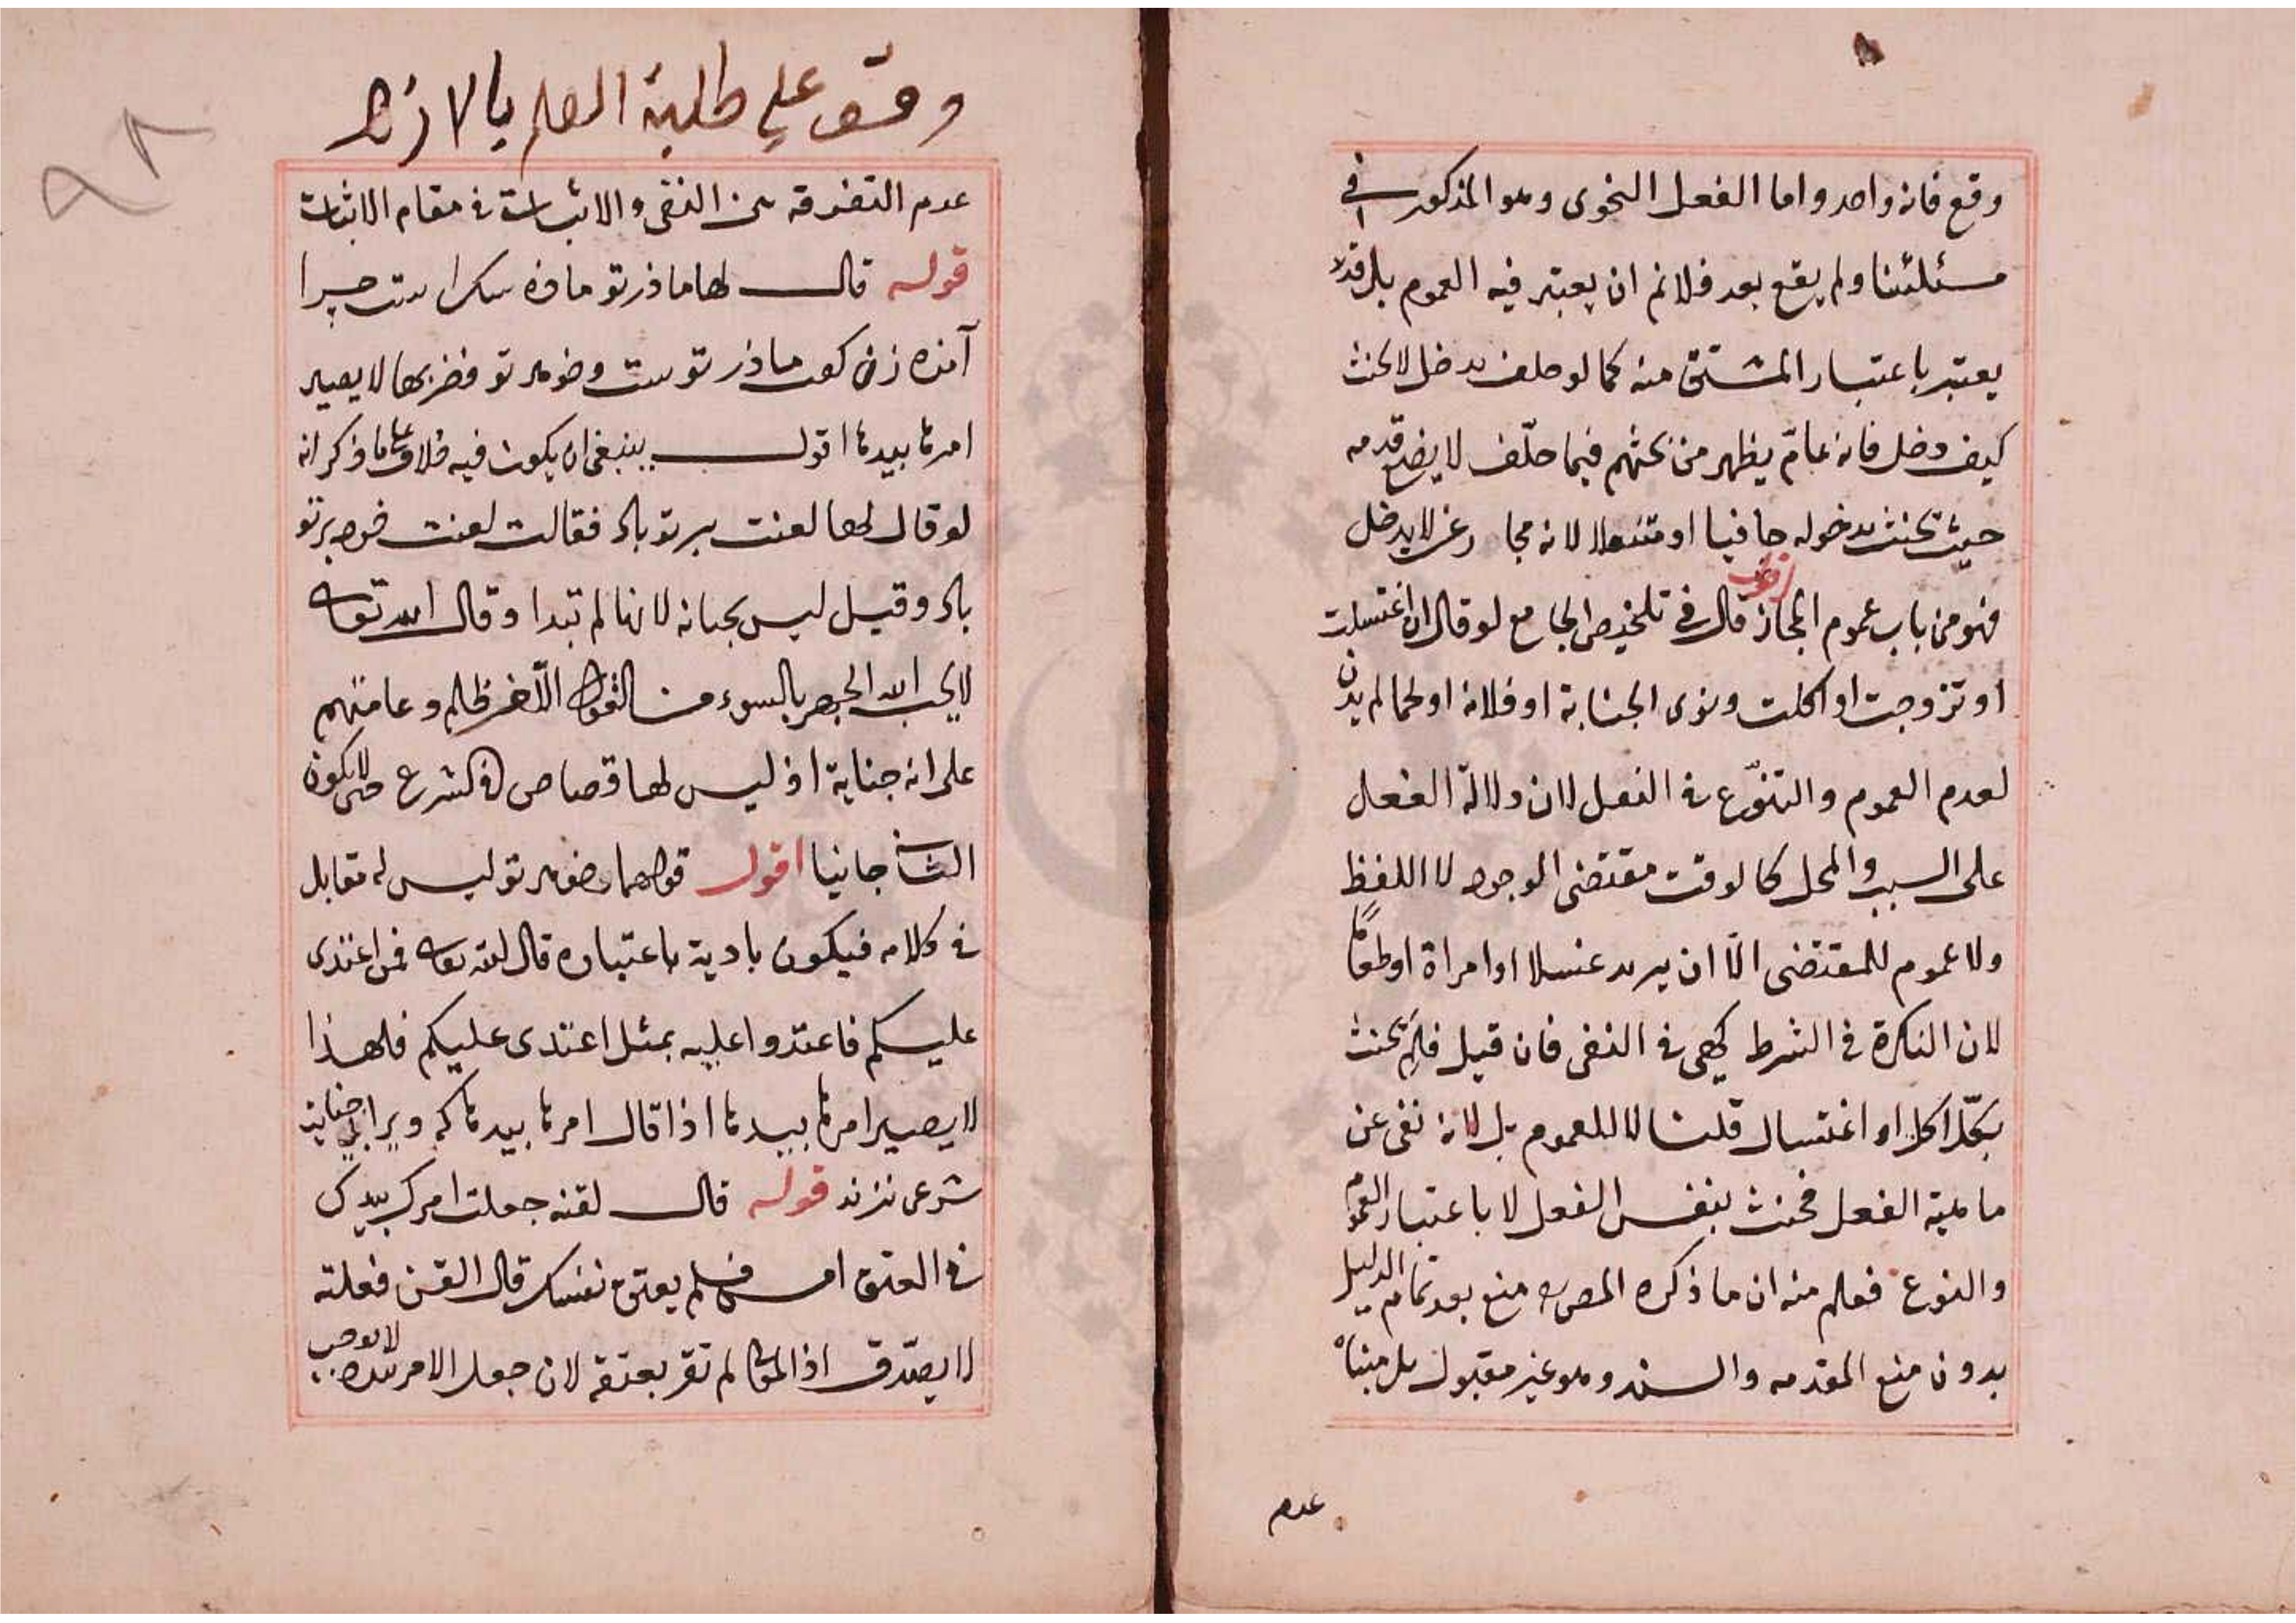 وقع فانه واحد واما الفعل النحوى وهو المذكور في
مسئلتنا ولم يقع بعد فلانم ان يعتبر فيه العموم بل قد لا
يعتبر باعتبار المشتق منه كما لو حلف يدخل لا يحنث
كيف دخل فانه عامّ يظهر من بحثهم فيما حلّف لا يضع قدمه
حيث يحنث بدخوله حافيا او متنعلا لانه مجاز عن لا يدخل
فهو من باب عموم المجاز اقول قال في تلخيص الجامع لو قال ان اغتسلت
او تزوجت او اكلت ونوى الجنابة او فلانة او لحما لم يدن
لعدم العموم والتنوّع في الفعل لان دلالة الفعل
على السبب والمحل كالوقت مقتضى الوجود لا اللفظ
ولا عموم للمقتضى الّا ان يريد غسلا او امراة او طعاما
لان النكرة في الشرط كهى في النفى فان قيل فلِمَ يحنث
بكلّ اكل او اغتسال قلنا لا للعموم بل لانه نفى عن
ماهية الفعل فحنث بنفس الفعل لا باعتبار العموم
والنوع فعلم منه ان ما ذكره المصره منع بعد تمام الدليل
بدون منع المقدمه والسند وهو غير مقبول بل مبناه
عدم
وقف على طلبة العلم بالازهر
٩٢
عدم التفرقه بين النفى والاثبات في مقام الاثبات
قوله قال لها ماذر تو ماذه سك است چرا
آمده زن كفت ماذر توست وخوهر تو فضربها لا يصير
امرها بيدها اقول ينبغى ان يكون فيه خلاف على ما ذكر انه
لو قال لها لعنت بر تو باد فقالت لعنت خود بر تو
باد وقيل ليس بجناية لانها لم تبدا وقال الله تعالى
لا يحب الله الجهر بالسوء من القول الّا من ظلم وعامتهم
على انه جناية اذ ليس لها قصاص في الشرع حتى لا يكون
الثانى جانيا اقول قولهما خوهر تو ليس له مقابل
في كلامه فيكون بادية باعتباره قال الله تعالى فمن اعتدى
عليكم فاعتدوا عليه بمثل اعتدى عليكم فلهذا
لا يصير امرها بيدها اذا قال امرها بيدها كه ويرا بى جنايت
شرعى نزند قوله قال لقنه جعلت امرك بيدك
في العتق امس فلم يعتق نفسك قال القن فعلته
لا يصدّق اذ المولى لم تقر بعتقه لان جعل الامر بيده لا يوجب